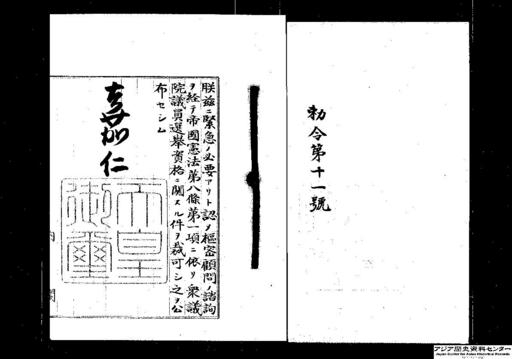 勅令第十一號
朕玆ニ緊急ノ必要アリト認メ樞密顧問ノ諮詢
ヲ經テ帝國憲法第八條第一項ニ依リ衆議
院議員選擧資格ニ關スル件ヲ裁可シ之ヲ公
布セシム
嘉仁
天皇御璽
內閣
アジア歴史資料センター
Japan Center for Asian Historical Records